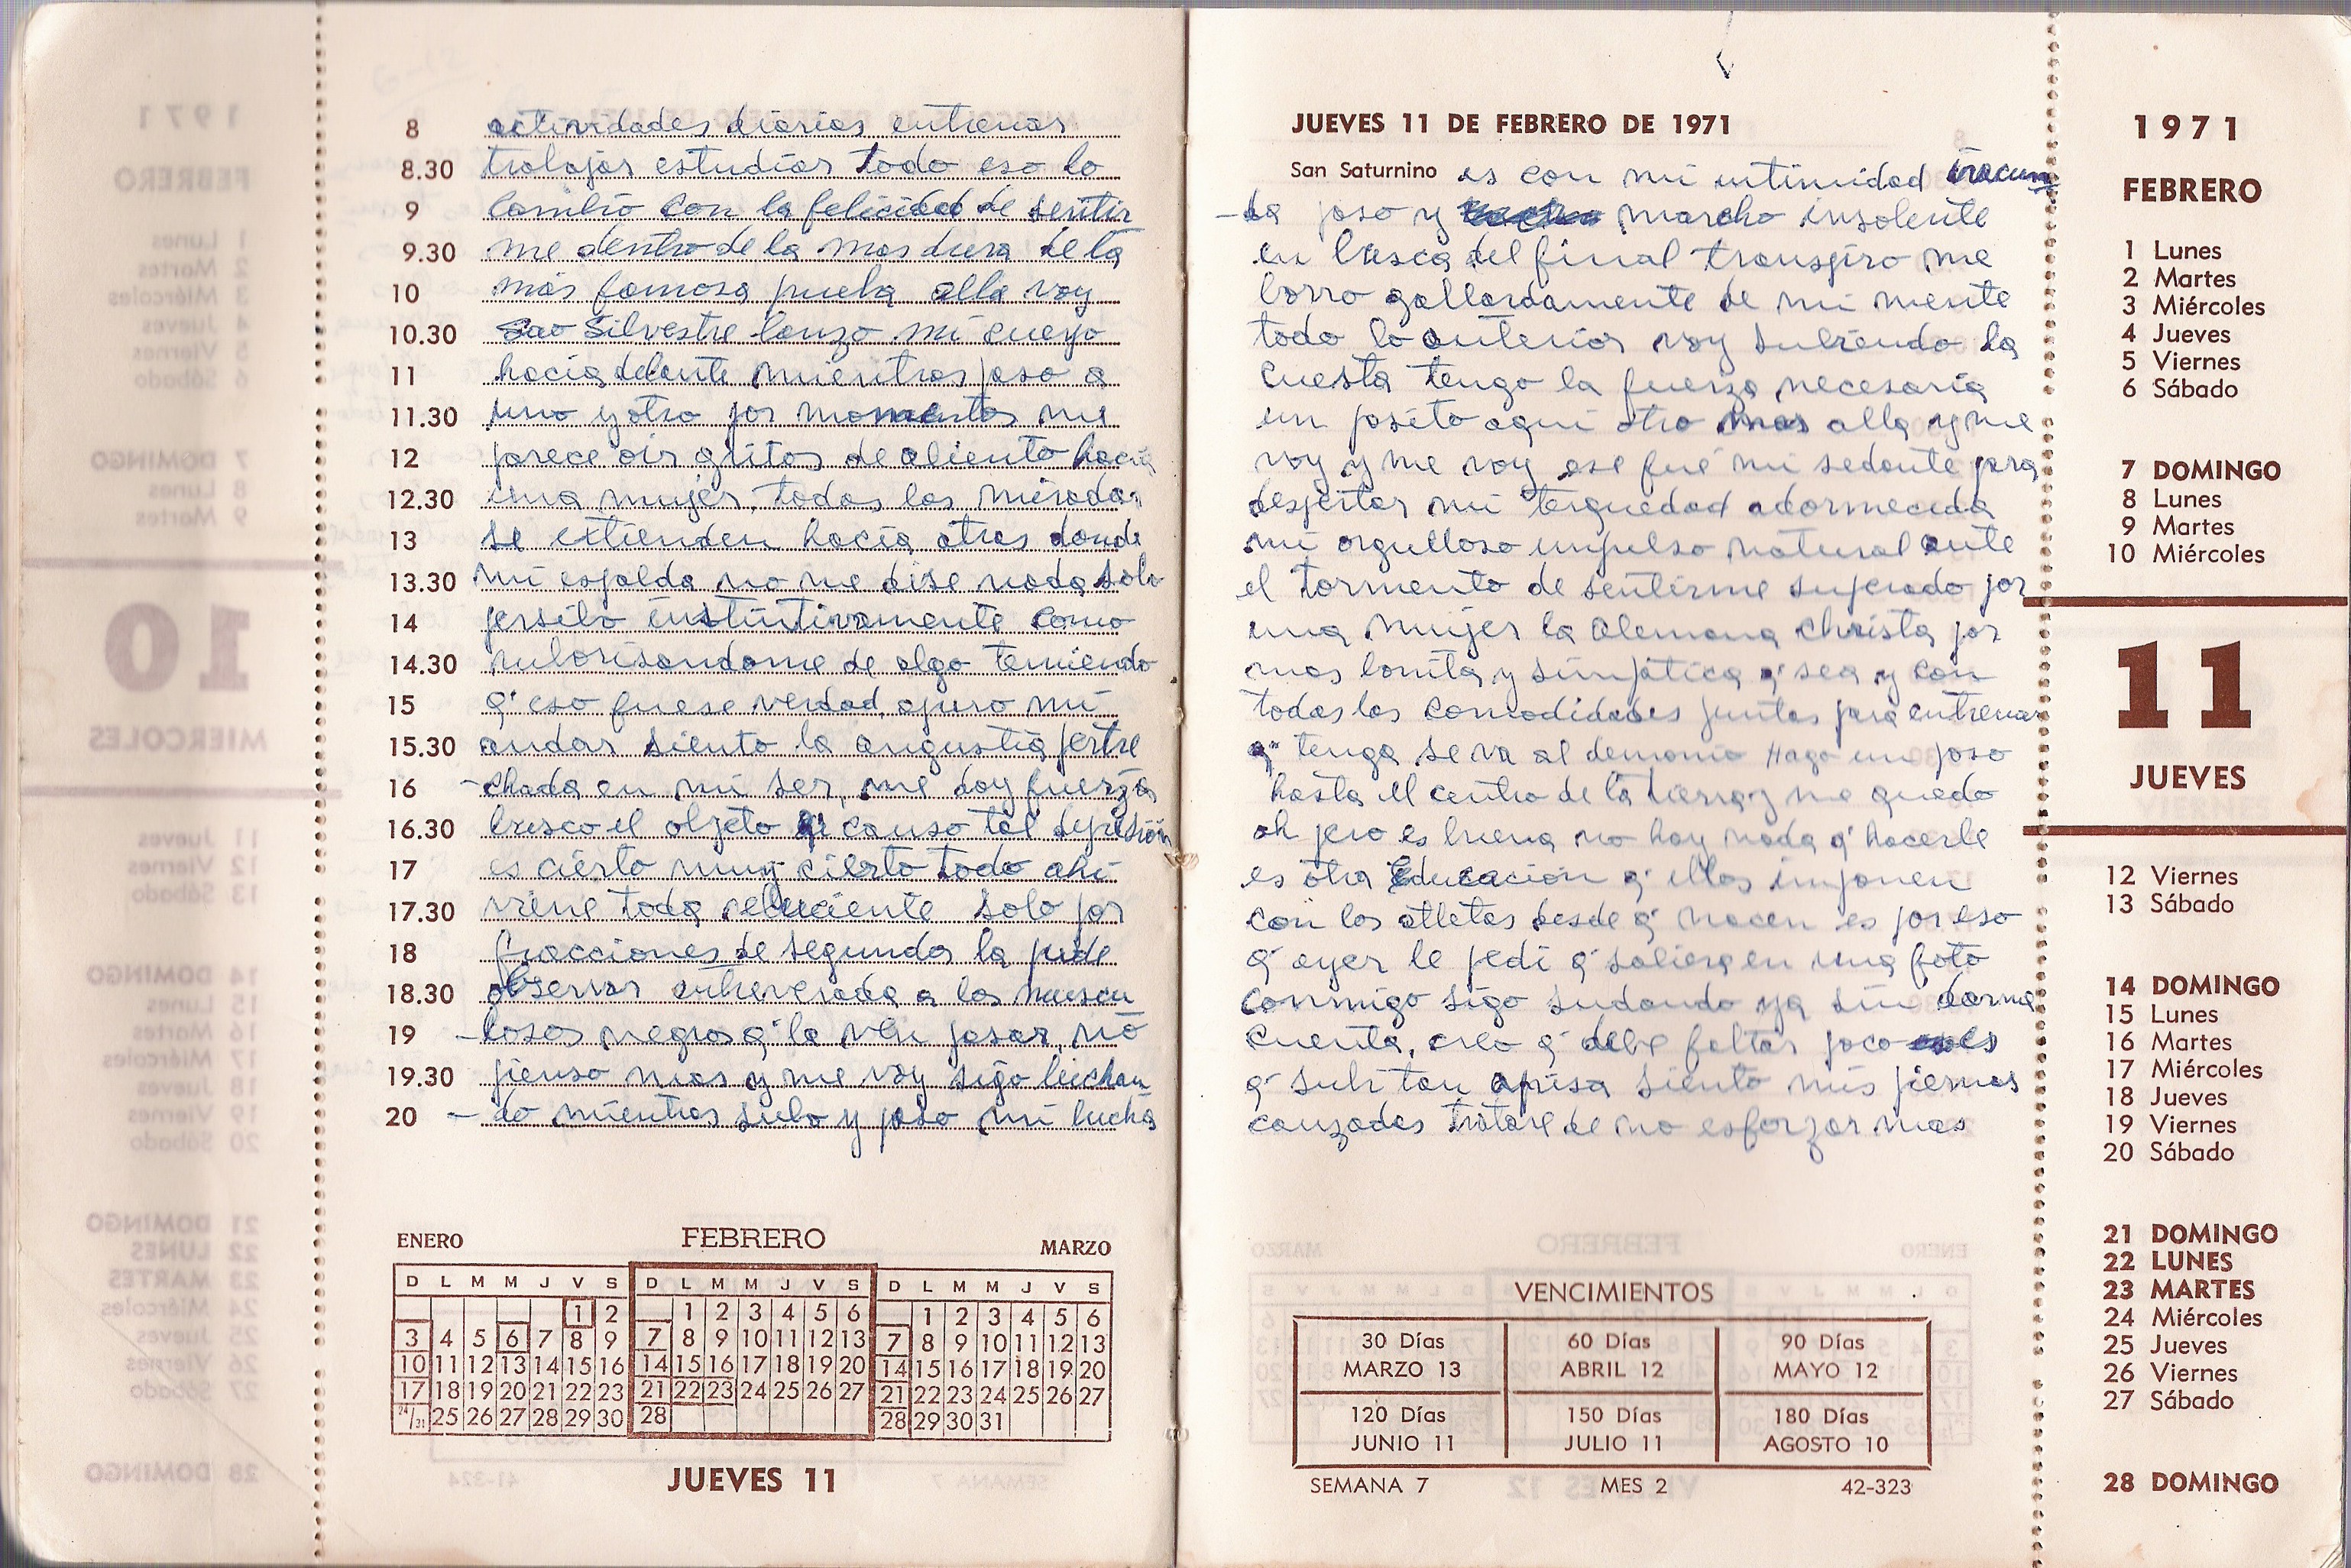 8 actividades diarias entrenar
8.30 trabajar estudiar todo eso lo
9 cambio con la felicidad de sentir
9.30 me dentro de la mas dura de la
10 más famosa prueba alla voy
10.30 Sao Silvestre lanzo mi cuerpo
11 hacia delante mientras paso a
11.30 uno y otro por momentos me
12 parece oir gritos de aliento hacia
12.30 una mujer, todas las miradas
13 se extienden hacia atras donde
13.30 mi espalda no me dise nada solo
14 persibo instintivamente como
14.30 ruborisandome de algo temiendo
15 q' eso fuese verdad, apuro mi
15.30 andar siento la angustia pertre
16 -chada en mi ser, me doy fuerza
16.30 busco el objeto q' causo tal depresión
17 es cierto muy cierto todo ahi
17.30 viene toda reluciente solo por
18 fracciones de segundos la pude
18.30 observar entreverada a los muscu
19 -losos negros q' la ven pasar, no
19.30 pienso mas y me voy sigo luchan
20 -do mientras subo y paso mi lucha
ENERO FEBRERO MARZO
D L M M J V S D L M M J V S D L M M J V S
1 2 1 2 3 4 5 6 1 2 3 4 5 6
3 4 5 6 7 8 9 7 8 9 10 11 12 13 7 8 9 10 11 12 13
10 11 12 13 14 15 16 14 15 16 17 18 19 20 14 15 16 17 18 19 20
17 18 19 20 21 22 23 21 22 23 24 25 26 27 21 22 23 24 25 26 27
24/31 25 26 27 28 29 30 28 28 29 30 31
JUEVES 11
JUEVES 11 DE FEBRERO DE 1971
San Saturnino es con mi intimidad iracun
-da paso y marcho insolente
en busca del final transpiro me
borro gallardamente de mi mente
todo lo anterior voy subiendo la
cuesta tengo la fuerza necesaria
un pasito aqui otro mas alla y me
voy y me voy ese fué mi sedante para
despertar mi terquedad adormecida
mi orgulloso impulso natural ante
el tormento de sentirme superado por
una mujer la Alemana Christa por
mas bonita y simpática q' sea y con
todas las comodidades juntas para entrenar
q' tenga se va al demonio Hago un poso
hasta el centro de la tierra y me quedo
ah pero es buena no hay nada q' hacerle
es otra Educación q' ellos imponen
con los atletas desde q' nacen es por eso
q' ayer le pedi q' saliera en una foto
conmigo sigo sudando ya sin darme
cuenta, creo q' debe faltar poco es
q' subi tan aprisa siento mis piernas
canzadas tratare de no esforzar mas
VENCIMIENTOS
30 Días 60 Días 90 Días
MARZO 13 ABRIL 12 MAYO 12
120 Días 150 Días 180 Días
JUNIO 11 JULIO 11 AGOSTO 10
SEMANA 7 MES 2 42-323
1971
FEBRERO
1 Lunes
2 Martes
3 Miércoles
4 Jueves
5 Viernes
6 Sábado
7 DOMINGO
8 Lunes
9 Martes
10 Miércoles
11
JUEVES
12 Viernes
13 Sábado
14 DOMINGO
15 Lunes
16 Martes
17 Miércoles
18 Jueves
19 Viernes
20 Sábado
21 DOMINGO
22 LUNES
23 MARTES
24 Miércoles
25 Jueves
26 Viernes
27 Sábado
28 DOMINGO